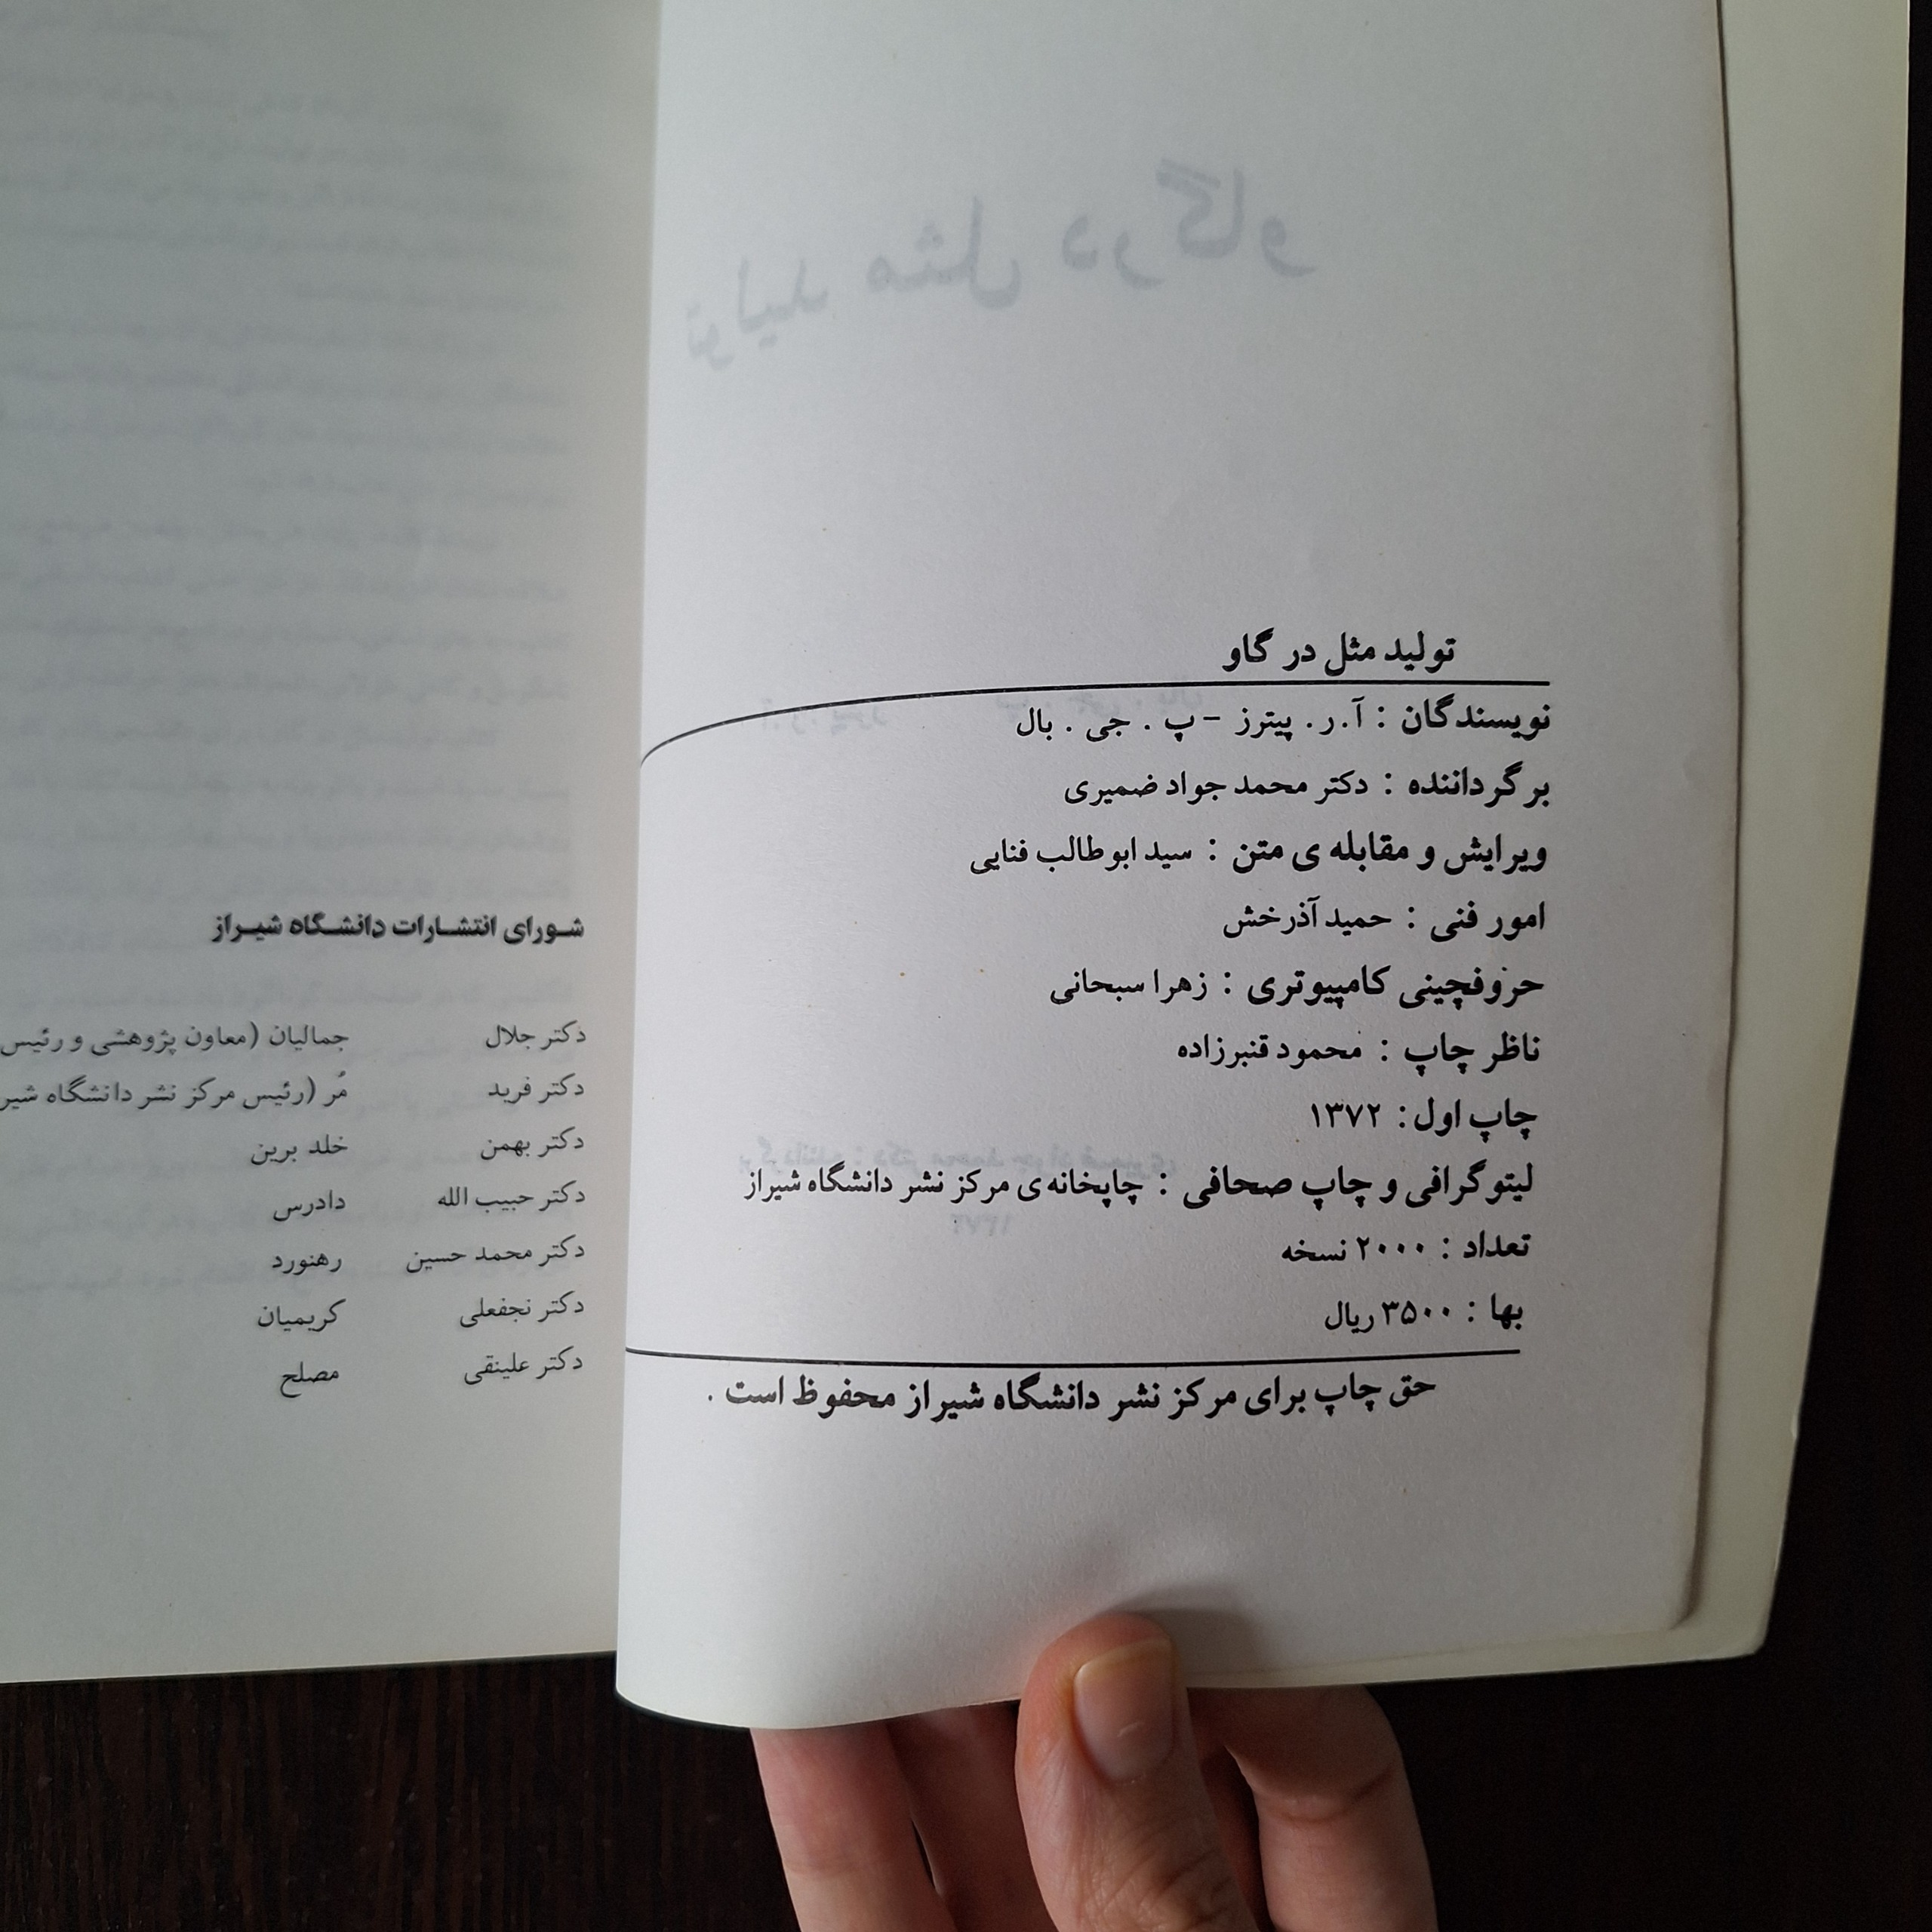 تولید مثل در گاو
نویسندگان : آ.ر. پیترز – پ . جی . بال
برگرداننده : دکتر محمد جواد ضمیری
ویرایش و مقابله ی متن : سید ابوطالب فنایی
امور فنی : حمید آذرخش
حروفچینی کامپیوتری : زهرا سبحانی
ناظر چاپ : محمود قنبرزاده
چاپ اول : ۱۳۷۲
لیتوگرافی و چاپ صحافی : چاپخانه ی مرکز نشر دانشگاه شیراز
تعداد : ۲۰۰۰ نسخه
بها : ۳۵۰۰ ریال
حق چاپ برای مرکز نشر دانشگاه شیراز محفوظ است .
شورای انتشارات دانشگاه شیراز
دکتر جلال جمالیان (معاون پژوهشی و رئیس
دکتر فرید مُر (رئیس مرکز نشر دانشگاه شیر
دکتر بهمن خلد برین
دکتر حبیب الله دادرس
دکتر محمد حسین رهنورد
دکتر نجفعلی کریمیان
دکتر علینقی مصلح